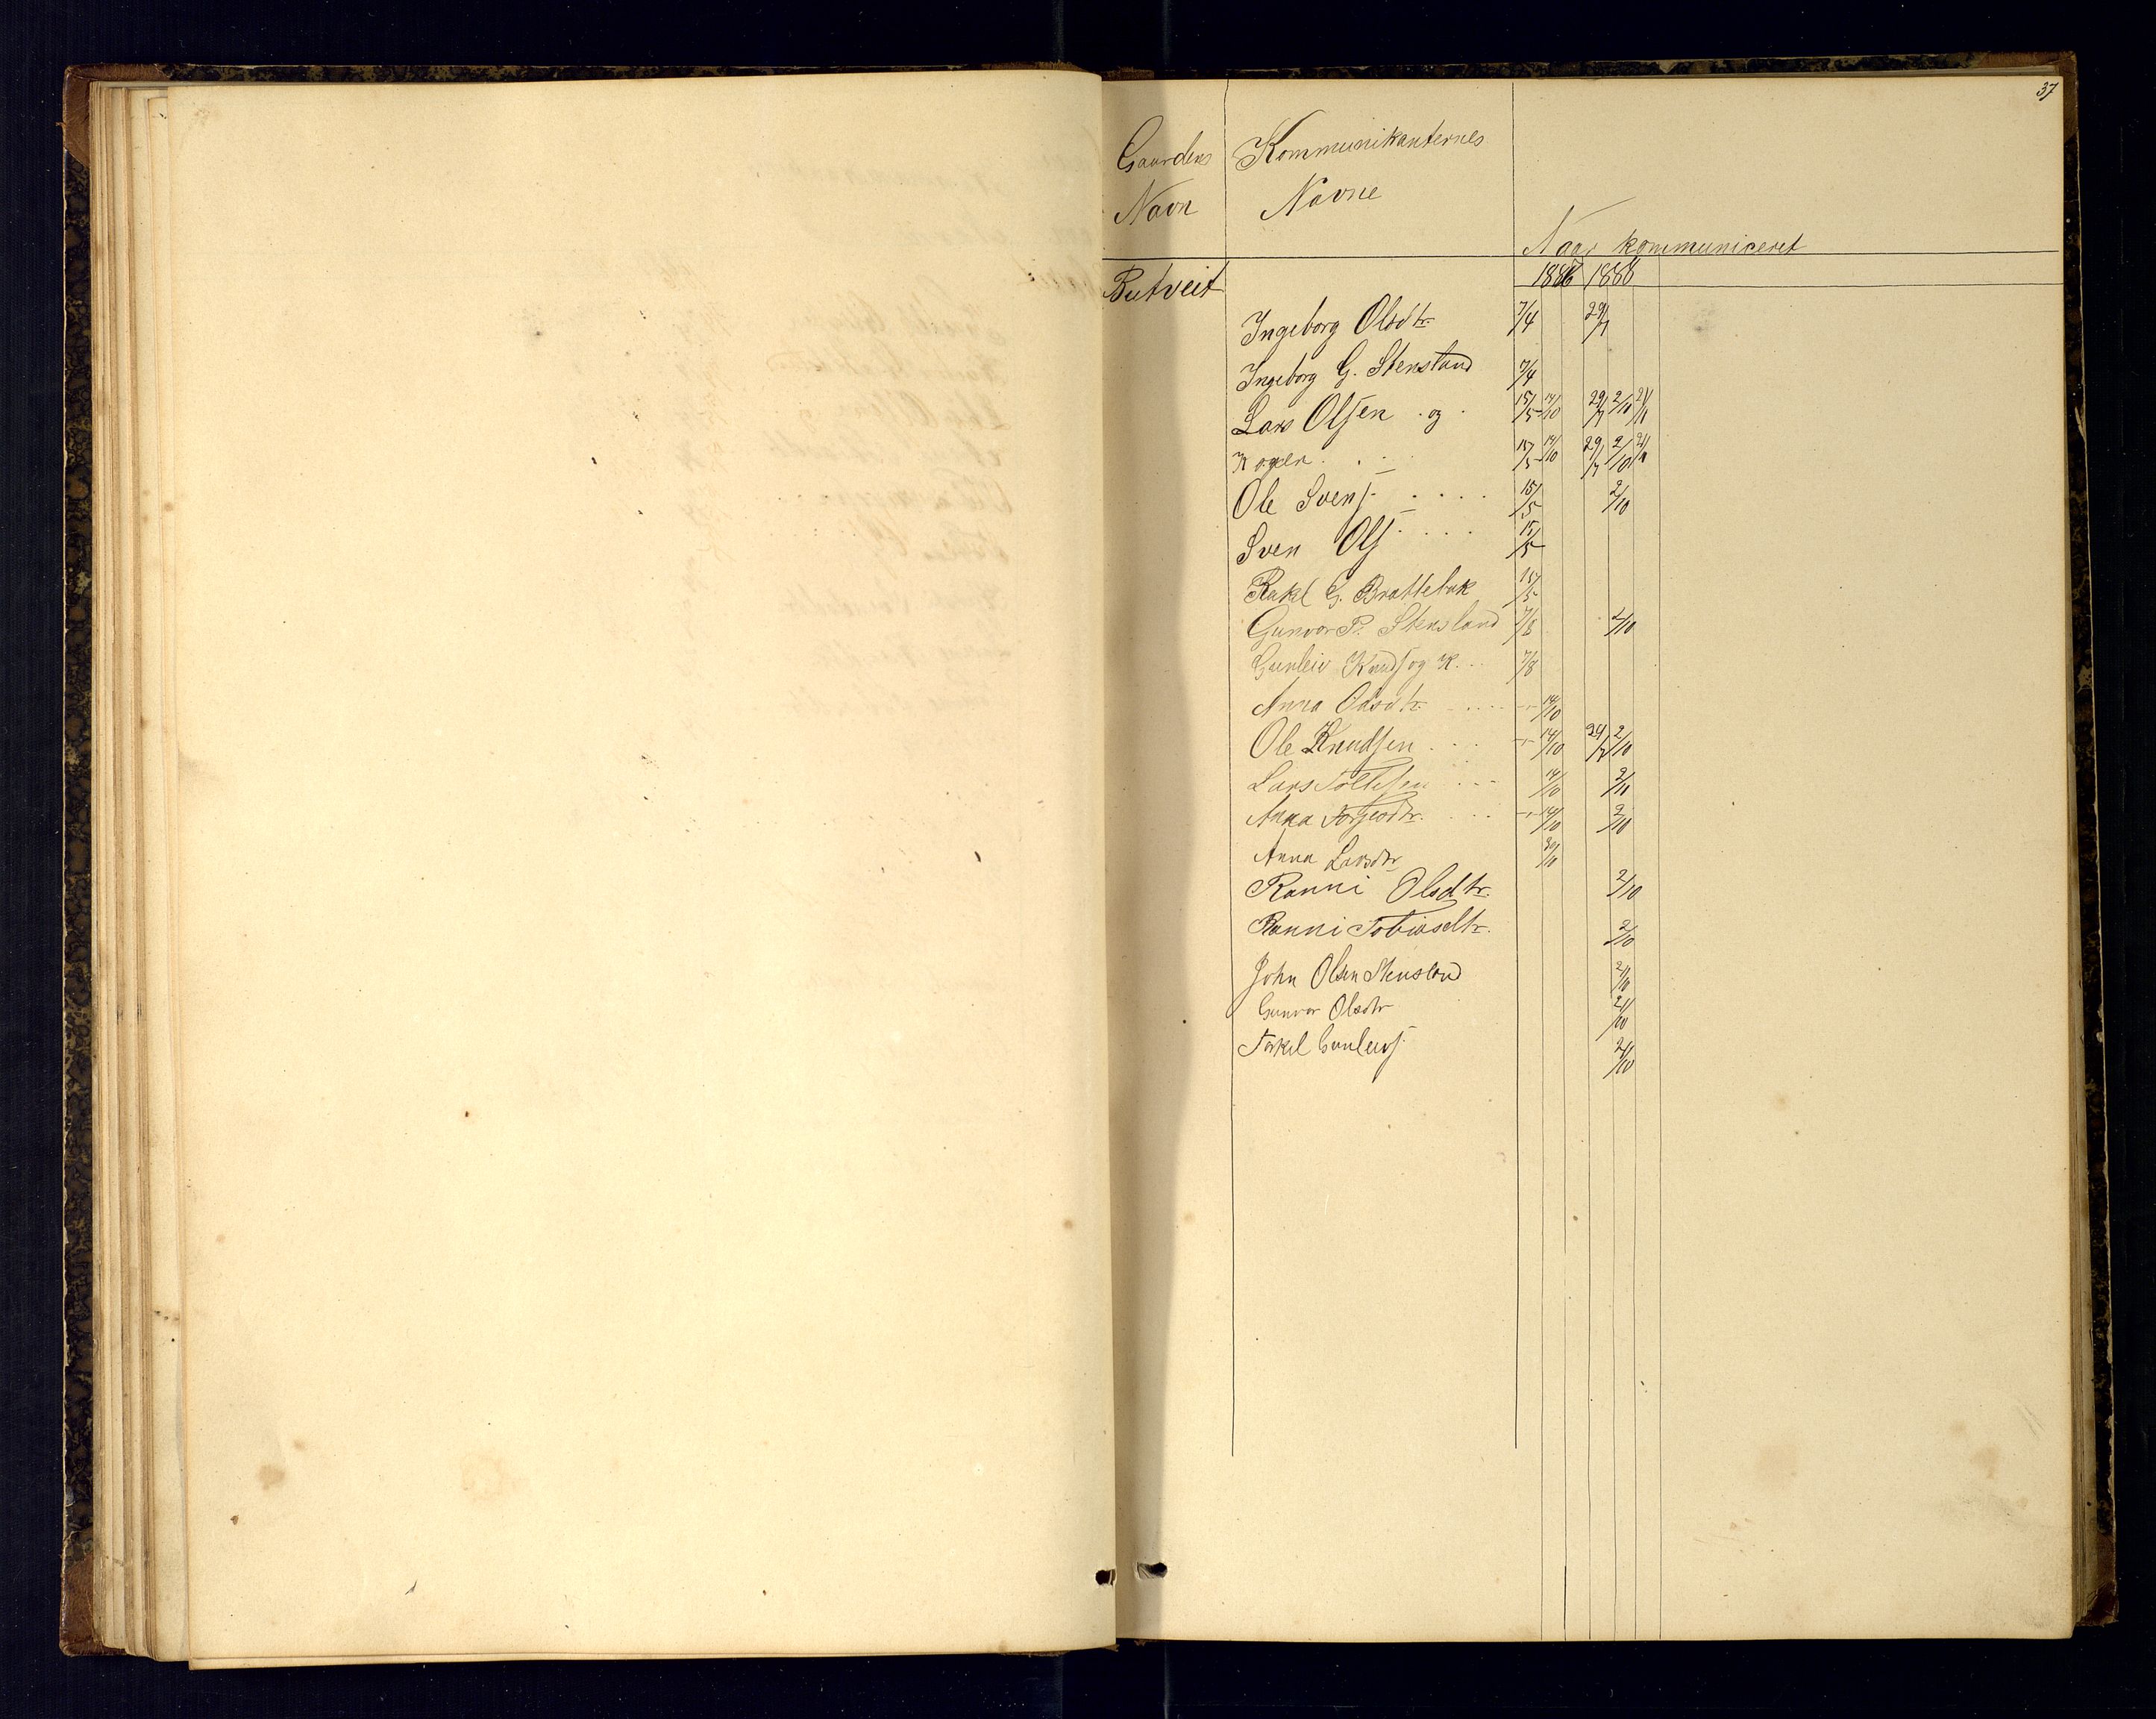 37
Gaardens Kommunikanternes
Navn Navne
Naar kommuniceret
Butveit 1886 1888
Ingeborg Olsdtr. 7/4 29/7
Ingeborg G. Stensland 7/4
Lars Olsen og 15/5 14/10 29/7 2/10 21/11
Konen 15/5 14/10 29/7 2/10 21/11
Ole Svens. 15/5 2/10
Sven Ols. 15/5
Rakel G. Brattebak 15/5
Gunvor P. Stensland 7/8 2/10
Gunleiv Knuds og K. 7/8
Anna Olsdtr. 14/10
Ole Knudsen 14/10 29/7 2/10
Lars Tollefsen 14/10 2/10
Anna Torjusdtr. 14/10 2/10
Anna Larsdtr
Ranni Olsdtr. 2/10
Ranni Tobiasdtr. 2/10
John Olsen Stensland 2/10
Gunvor Olsdtr 2/10
Torkel Gunleivs. 2/10